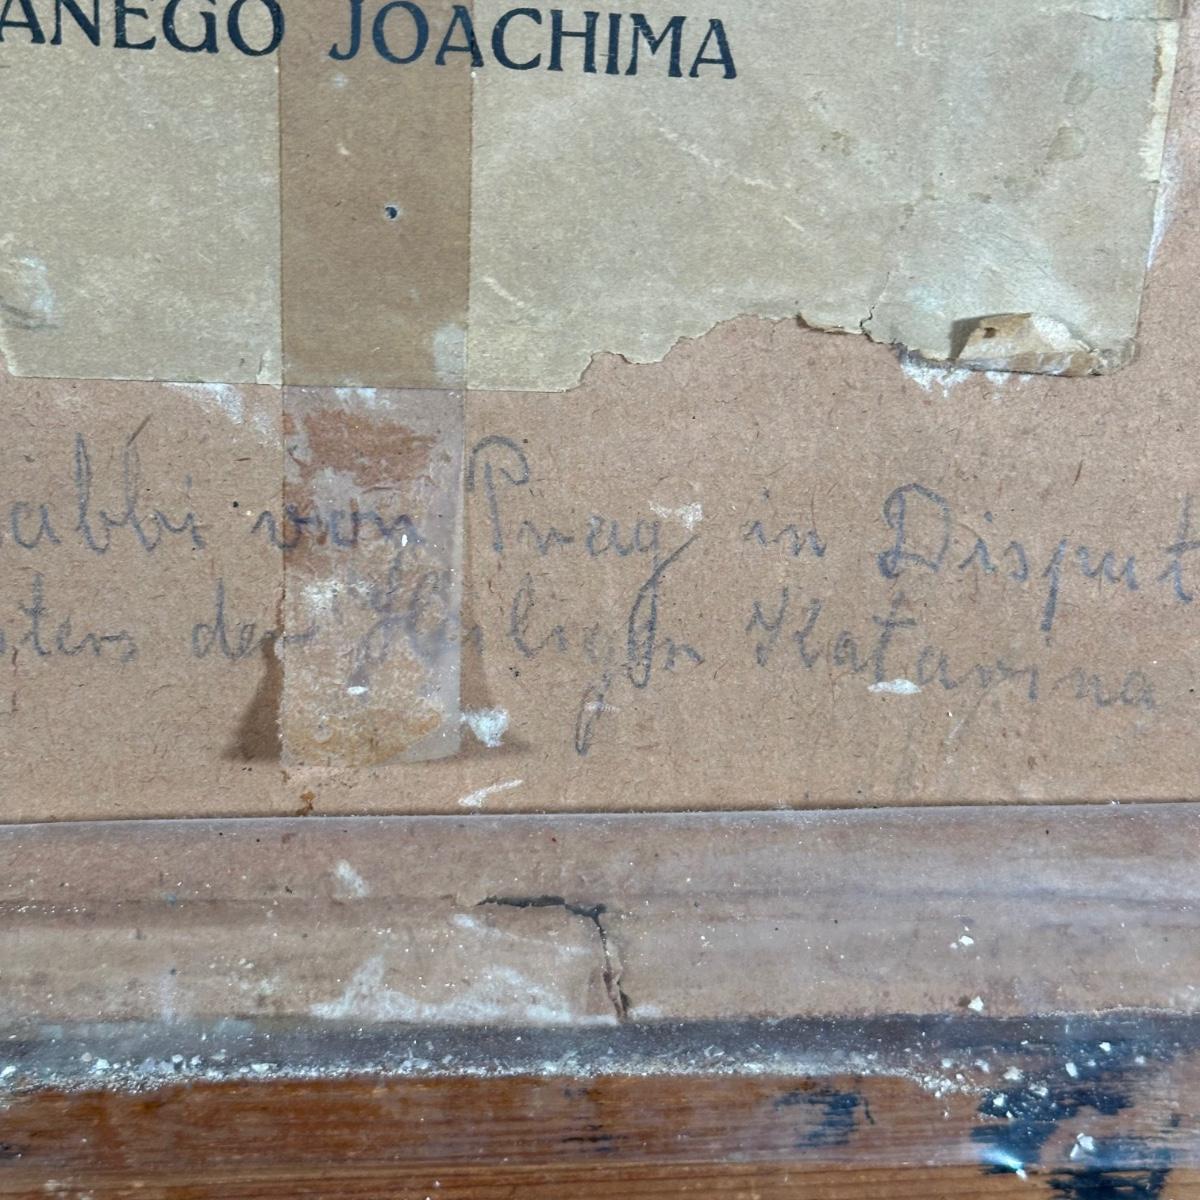 ANEGO JOACHIMA
abbi von Prag in Disput
sters der Heiligen Katarina